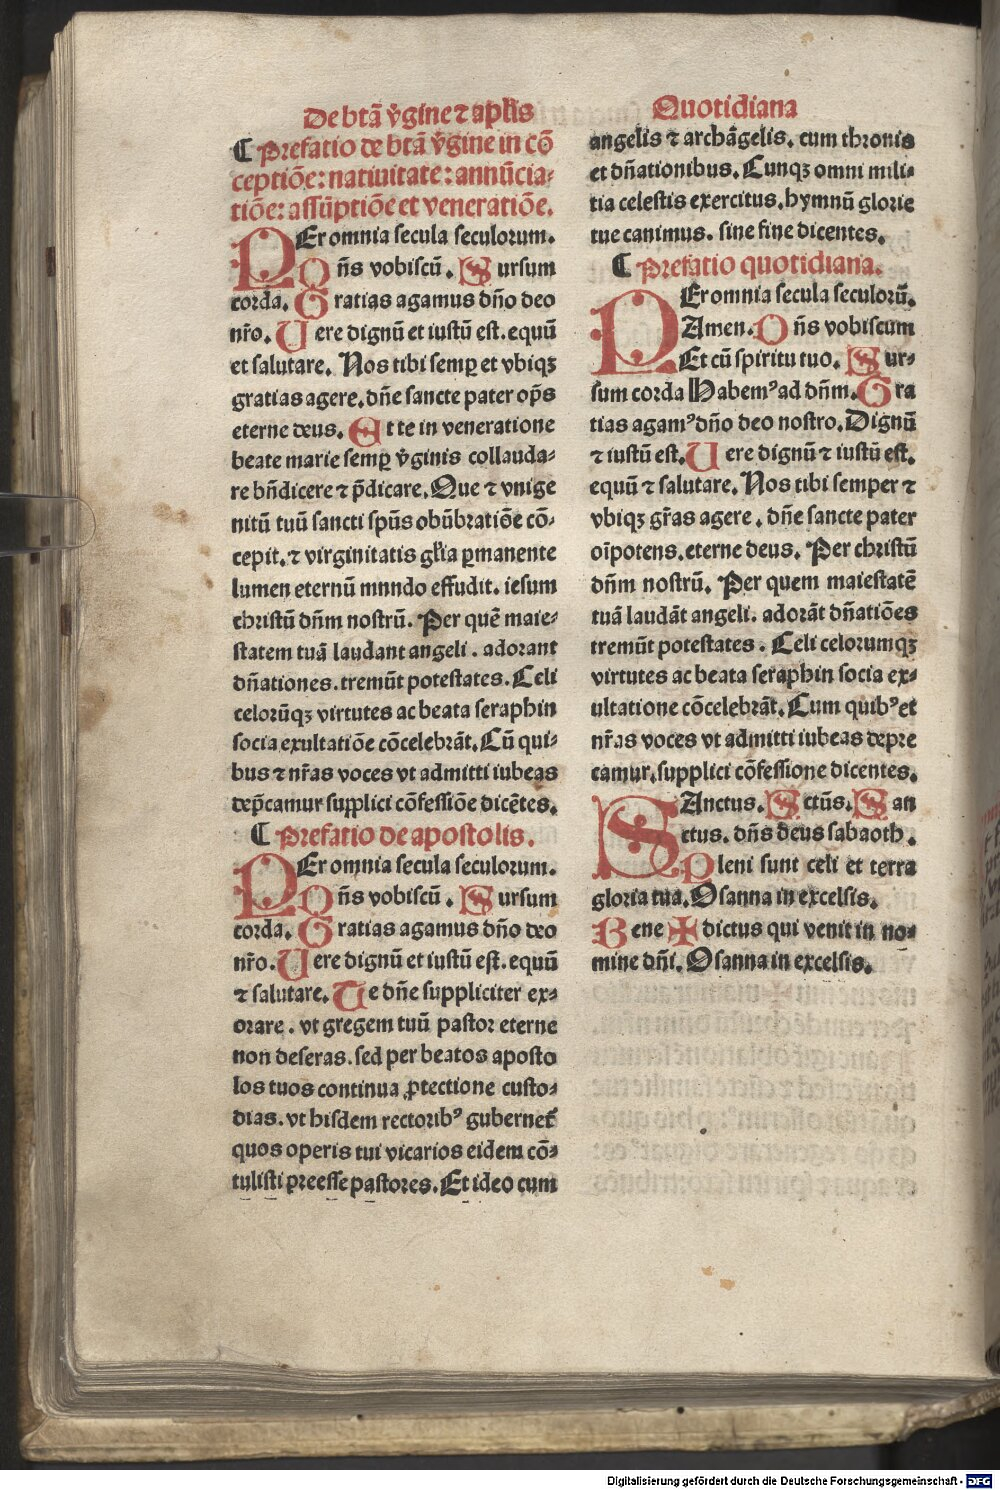 De btã v̾gine ⁊ apl̃is
¶ Prefatio de btã v̾gine in cõ
ceptiõe: natiuitate: annũcia⸗
tiõe: assũptiõe et veneratiõe.
PEr omnia secula seculorum.
Dñs vobiscũ. Sursum
corda. Gratias agamus dño deo
nr̃o. Uere dignũ et iustũ est. equũ
et salutare. Nos tibi semꝑ et vbiqꝫ
gratias agere. dñe sancte pater op̃s
eterne deus. Et te in veneratione
beate marie semꝑ v̾ginis collauda⸗
re bñdicere ⁊ p̃dicare. Que ⁊ vnige
nitũ tuũ sancti sp̃us obũbratiõe cõ⸗
cepit. ⁊ virginitatis gl̃ia ꝑmanente
lumen eternũ mnndo effudit. iesum
christũ dñm nostrũ. Per quẽ maie⸗
statem tuã laudant angeli. adorant
dñationes. tremũt potestates. Celi
celorũqꝫ virtutes ac beata seraphin
socia exultatiõe cõcelebrãt. Cũ qui⸗
bus ⁊ nr̃as voces vt admitti iubeas
dep̃camur supplici cõfessiõe dicẽtes.
¶ Prefatio de apostolis.
PEr omnia secula seculorum.
Dñs vobiscũ. Sursum
corda. Gratias agamus dño deo
nr̃o. Uere dignũ et iustũ est. equũ
⁊ salutare. Te dñe suppliciter ex⸗
orare. vt gregem tuũ pastor eterne
non deseras. sed per beatos aposto
los tuos continua ꝓtectione custo⸗
dias. vt hisdem rectoribꝰ gubernet̃
quos operis tui vicarios eidem cõ⸗
tulisti preesse pastores. Et ideo cum
Quotidiana
angelis ⁊ archãgelis. cum thronis
et dñationibus. Cunqꝫ omni mili⸗
tia celestis exercitus. hymnũ glorie
tue canimus. sine fine dicentes.
¶ Prefatio quotidiana.
PEr omnia secula seculorũ.
Amen. Dñs vobiscum
Et cũ spiritu tuo. Sur⸗
sum corda Habemꝰ ad dñm. Gra
tias agamꝰ dño deo nostro. Dignũ
⁊ iustũ est. Uere dignũ ⁊ iustũ est.
equũ ⁊ salutare. Nos tibi semper ⁊
vbiqꝫ gr̃as agere. dñe sancte pater
oĩpotens. eterne deus. Per christũ
dñm nostrũ. Per quem maiestatẽ
tuã laudãt angeli. adorãt dñatiões
tremũt potestates. Celi celorumqꝫ
virtutes ac beata seraphin socia ex⸗
ultatione cõcelebrãt. Cum quibꝰ et
nr̃as voces vt admitti iubeas depre
camur. supplici cõfessione dicentes.
SAnctus. Sctũs. San
ctus. dñs deus sabaoth.
Pleni sunt celi et terra
gloria tua. Osanna in excelsis.
Bene ✠ dictus qui venit in no⸗
mine dñi. Osanna in excelsis.
Digitalisierung gefördert durch die Deutsche Forschungsgemeinschaft - DFG